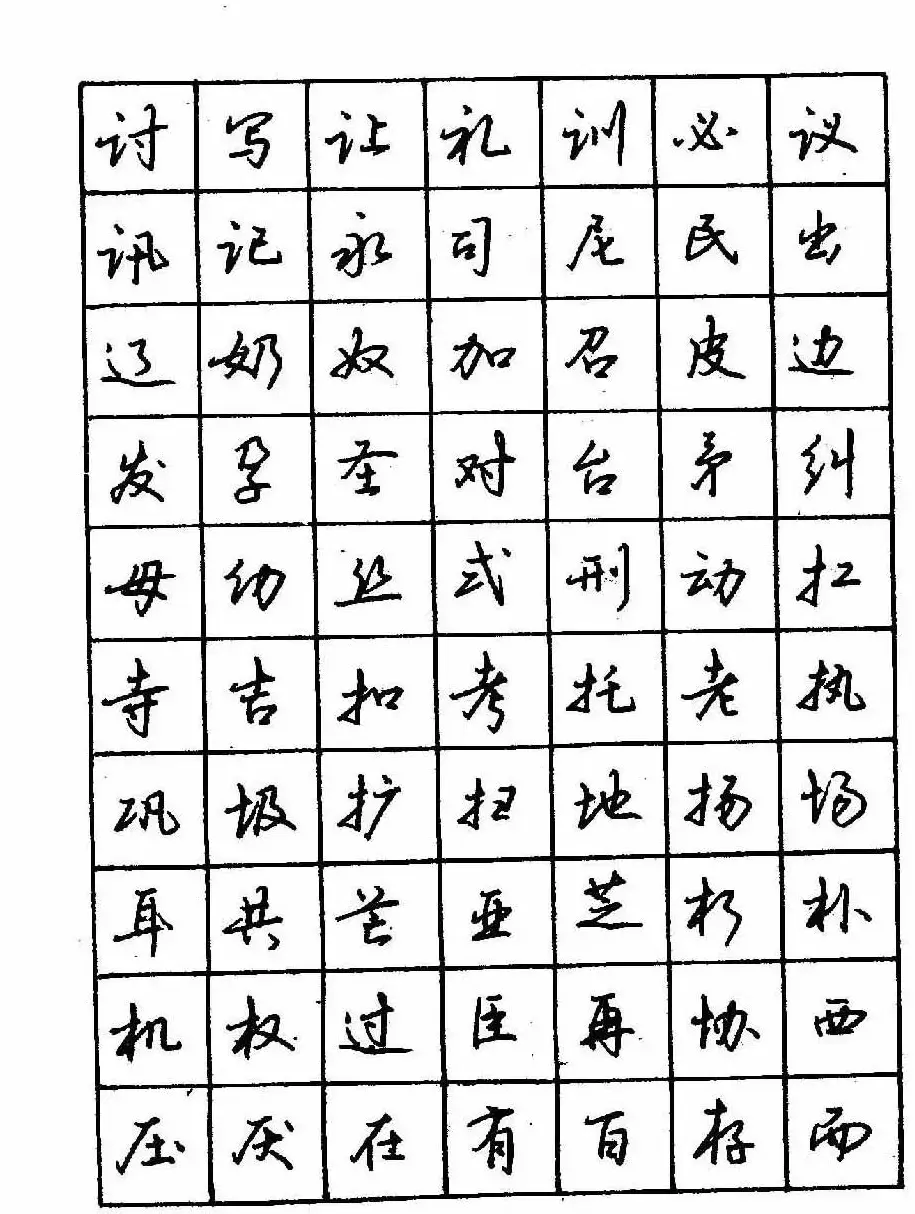 讨写让礼训必议
讯记永司尼民出
辽奶奴加召皮边
发孕圣对台矛纠
母幼丝式刑动扛
寺吉扣考托老执
巩圾扩扫地扬场
耳共芒亚芝朽朴
机权过臣再协西
压厌在有百存而